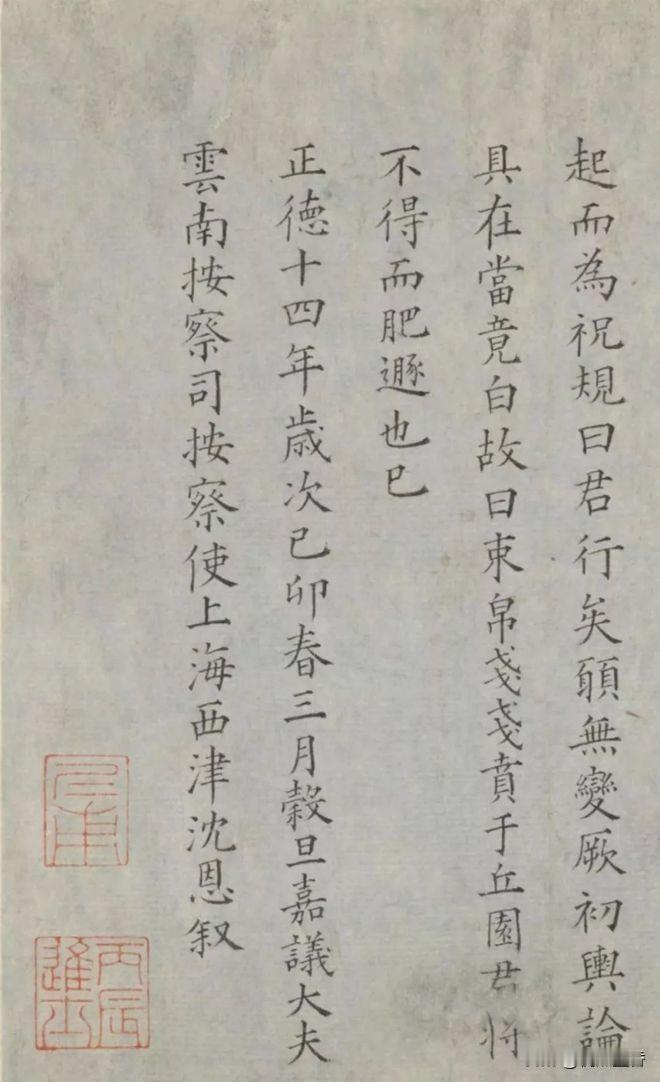 起而為祝規曰君行矣願無變厥初輿論
具在當竟白故曰束帛戔戔賁于丘園君将
不得而肥遯也已
正德十四年歲次己卯春三月穀旦嘉議大夫
雲南按察司按察使上海西津沈恩叙
丙辰進士